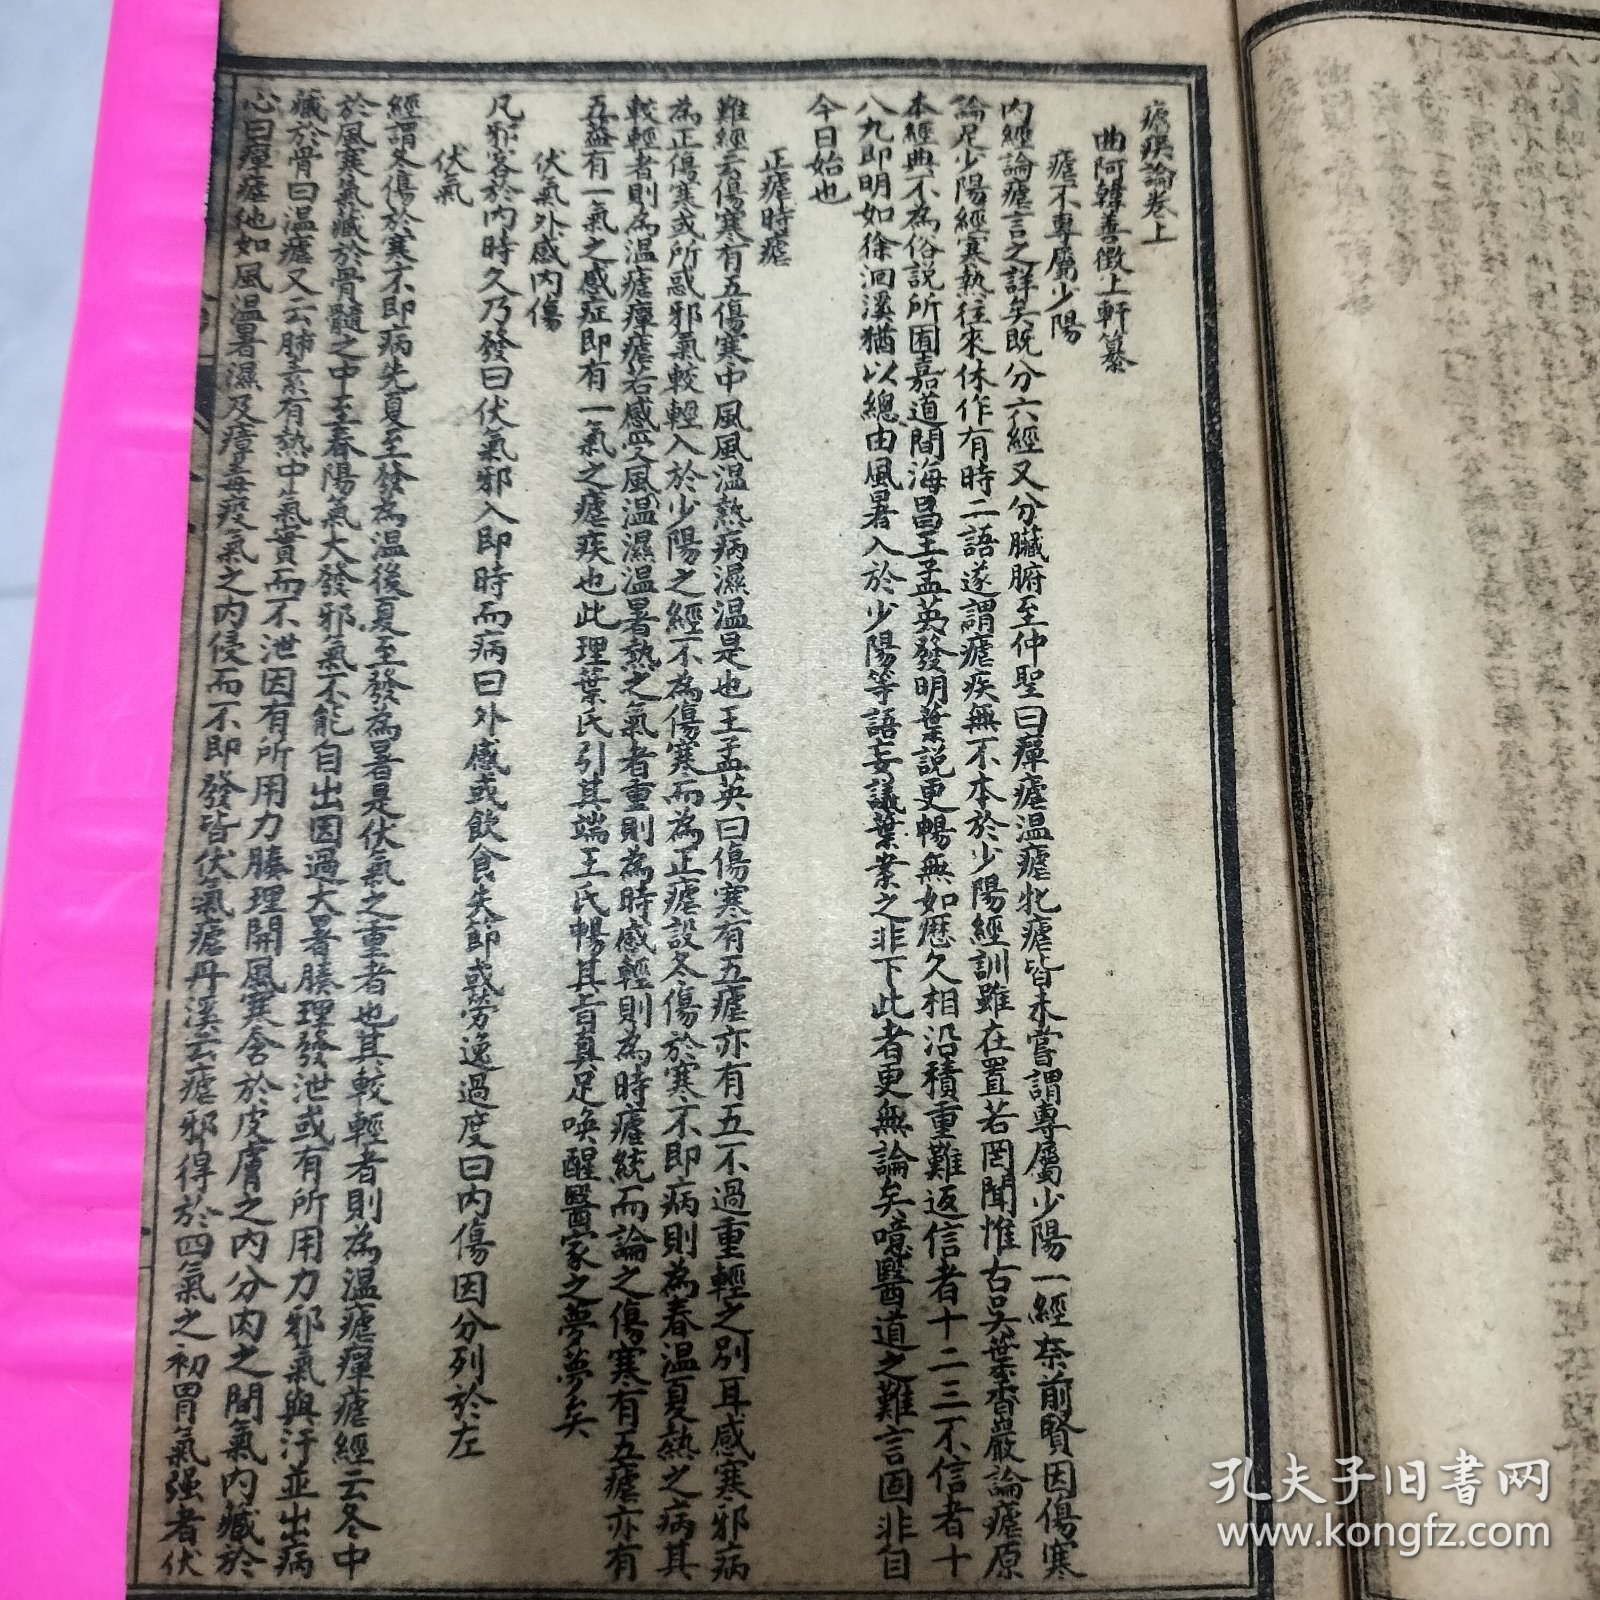 瘧疾論卷上
曲阿韓善徵止軒纂
瘧不專屬少陽
內經論瘧言之詳矣既分六經又分臟腑至仲聖曰癉瘧溫瘧牝瘧皆未嘗謂專屬少陽一經奈前賢因傷寒
論足少陽經寒熱往來休作有時二語遂謂瘧疾無不本於少陽經訓雖在置若罔聞惟古吳葉香巖論瘧原
本經典不為俗說所囿嘉道間海昌王孟英發明葉說更暢無如歷久相沿積重難返信者十二三不信者十
八九即明如徐洄溪猶以總由風暑入於少陽等語妄議葉案之非下此者更無論矣噫醫道之難言固非自
今日始也
正瘧時瘧
難經云傷寒有五傷寒中風風溫熱病濕溫是也王孟英曰傷寒有五瘧亦有五不過重輕之別耳感寒邪病
為正傷寒或所感邪氣較輕入於少陽之經不為傷寒而為正瘧設冬傷於寒不即病則為春溫夏熱之病其
較輕者則為溫瘧癉瘧若感受風溫濕溫暑熱之氣者重則為時感輕則為時瘧統而論之傷寒有五瘧亦有
五蓋有一氣之感症即有一氣之瘧疾也此理葉氏引其端王氏暢其旨真足喚醒醫家之夢夢矣
伏氣外感內傷
凡邪客於內時久乃發曰伏氣邪入即時而病曰外感或飲食失節或勞逸過度曰內傷因分列於左
伏氣
經謂冬傷於寒不即病先夏至發為溫後夏至發為暑是伏氣之重者也其較輕者則為溫瘧癉瘧經云冬中
於風寒氣藏於骨髓之中至春陽氣大發邪氣不能自出因過大暑腠理發泄或有所用力邪氣與汗並出病
藏於骨曰溫瘧又云肺素有熱中氣實而不泄因有所用力腠理開風寒舍於皮膚之內分肉之間氣內藏於
心曰癉瘧他如風溫暑濕及瘴毒疫氣之內侵而不即發皆伏氣瘧丹溪云瘧邪得於四氣之初胃氣強者伏
孔夫子旧书网
www.kongfz.com